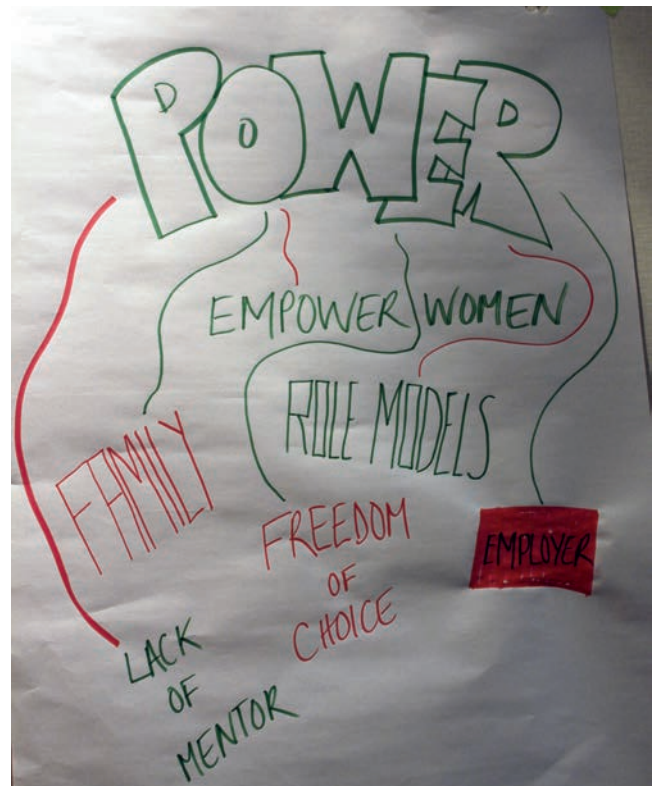 POWER
EMPOWER WOMEN
ROLE MODELS
FAMILY
FREEDOM
OF
CHOICE
EMPLOYER
LACK
OF
MENTOR